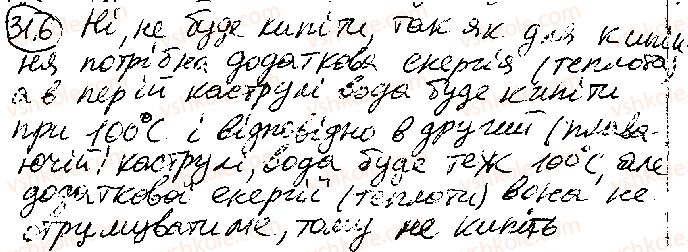 31.6 Ні, не буде кипіти, так як для кипін-
ня потрібна додаткова енергія (теплота)
а в перій каструлі вода буде кипіти
при 100°C і відповідно в другий (плава-
ючій) каструлі, вода буде теж 100°C, але
додаткової енергій (теплоти) вона не
отримуватиме, тому не кипить